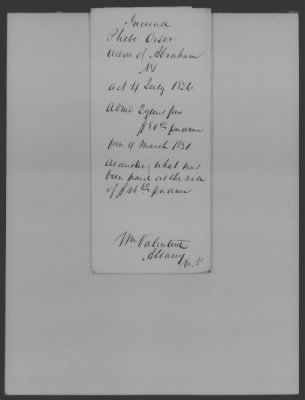 Increase
Phebe Orser
widow of Abraham
NY
act 4 July 1836
Admd 2 yrs for
$80 00 pr ann
from 4 March 1831
deducting what has
been paid at the rate
of $44 pr ann
Wm Valentine
Albany
N.Y